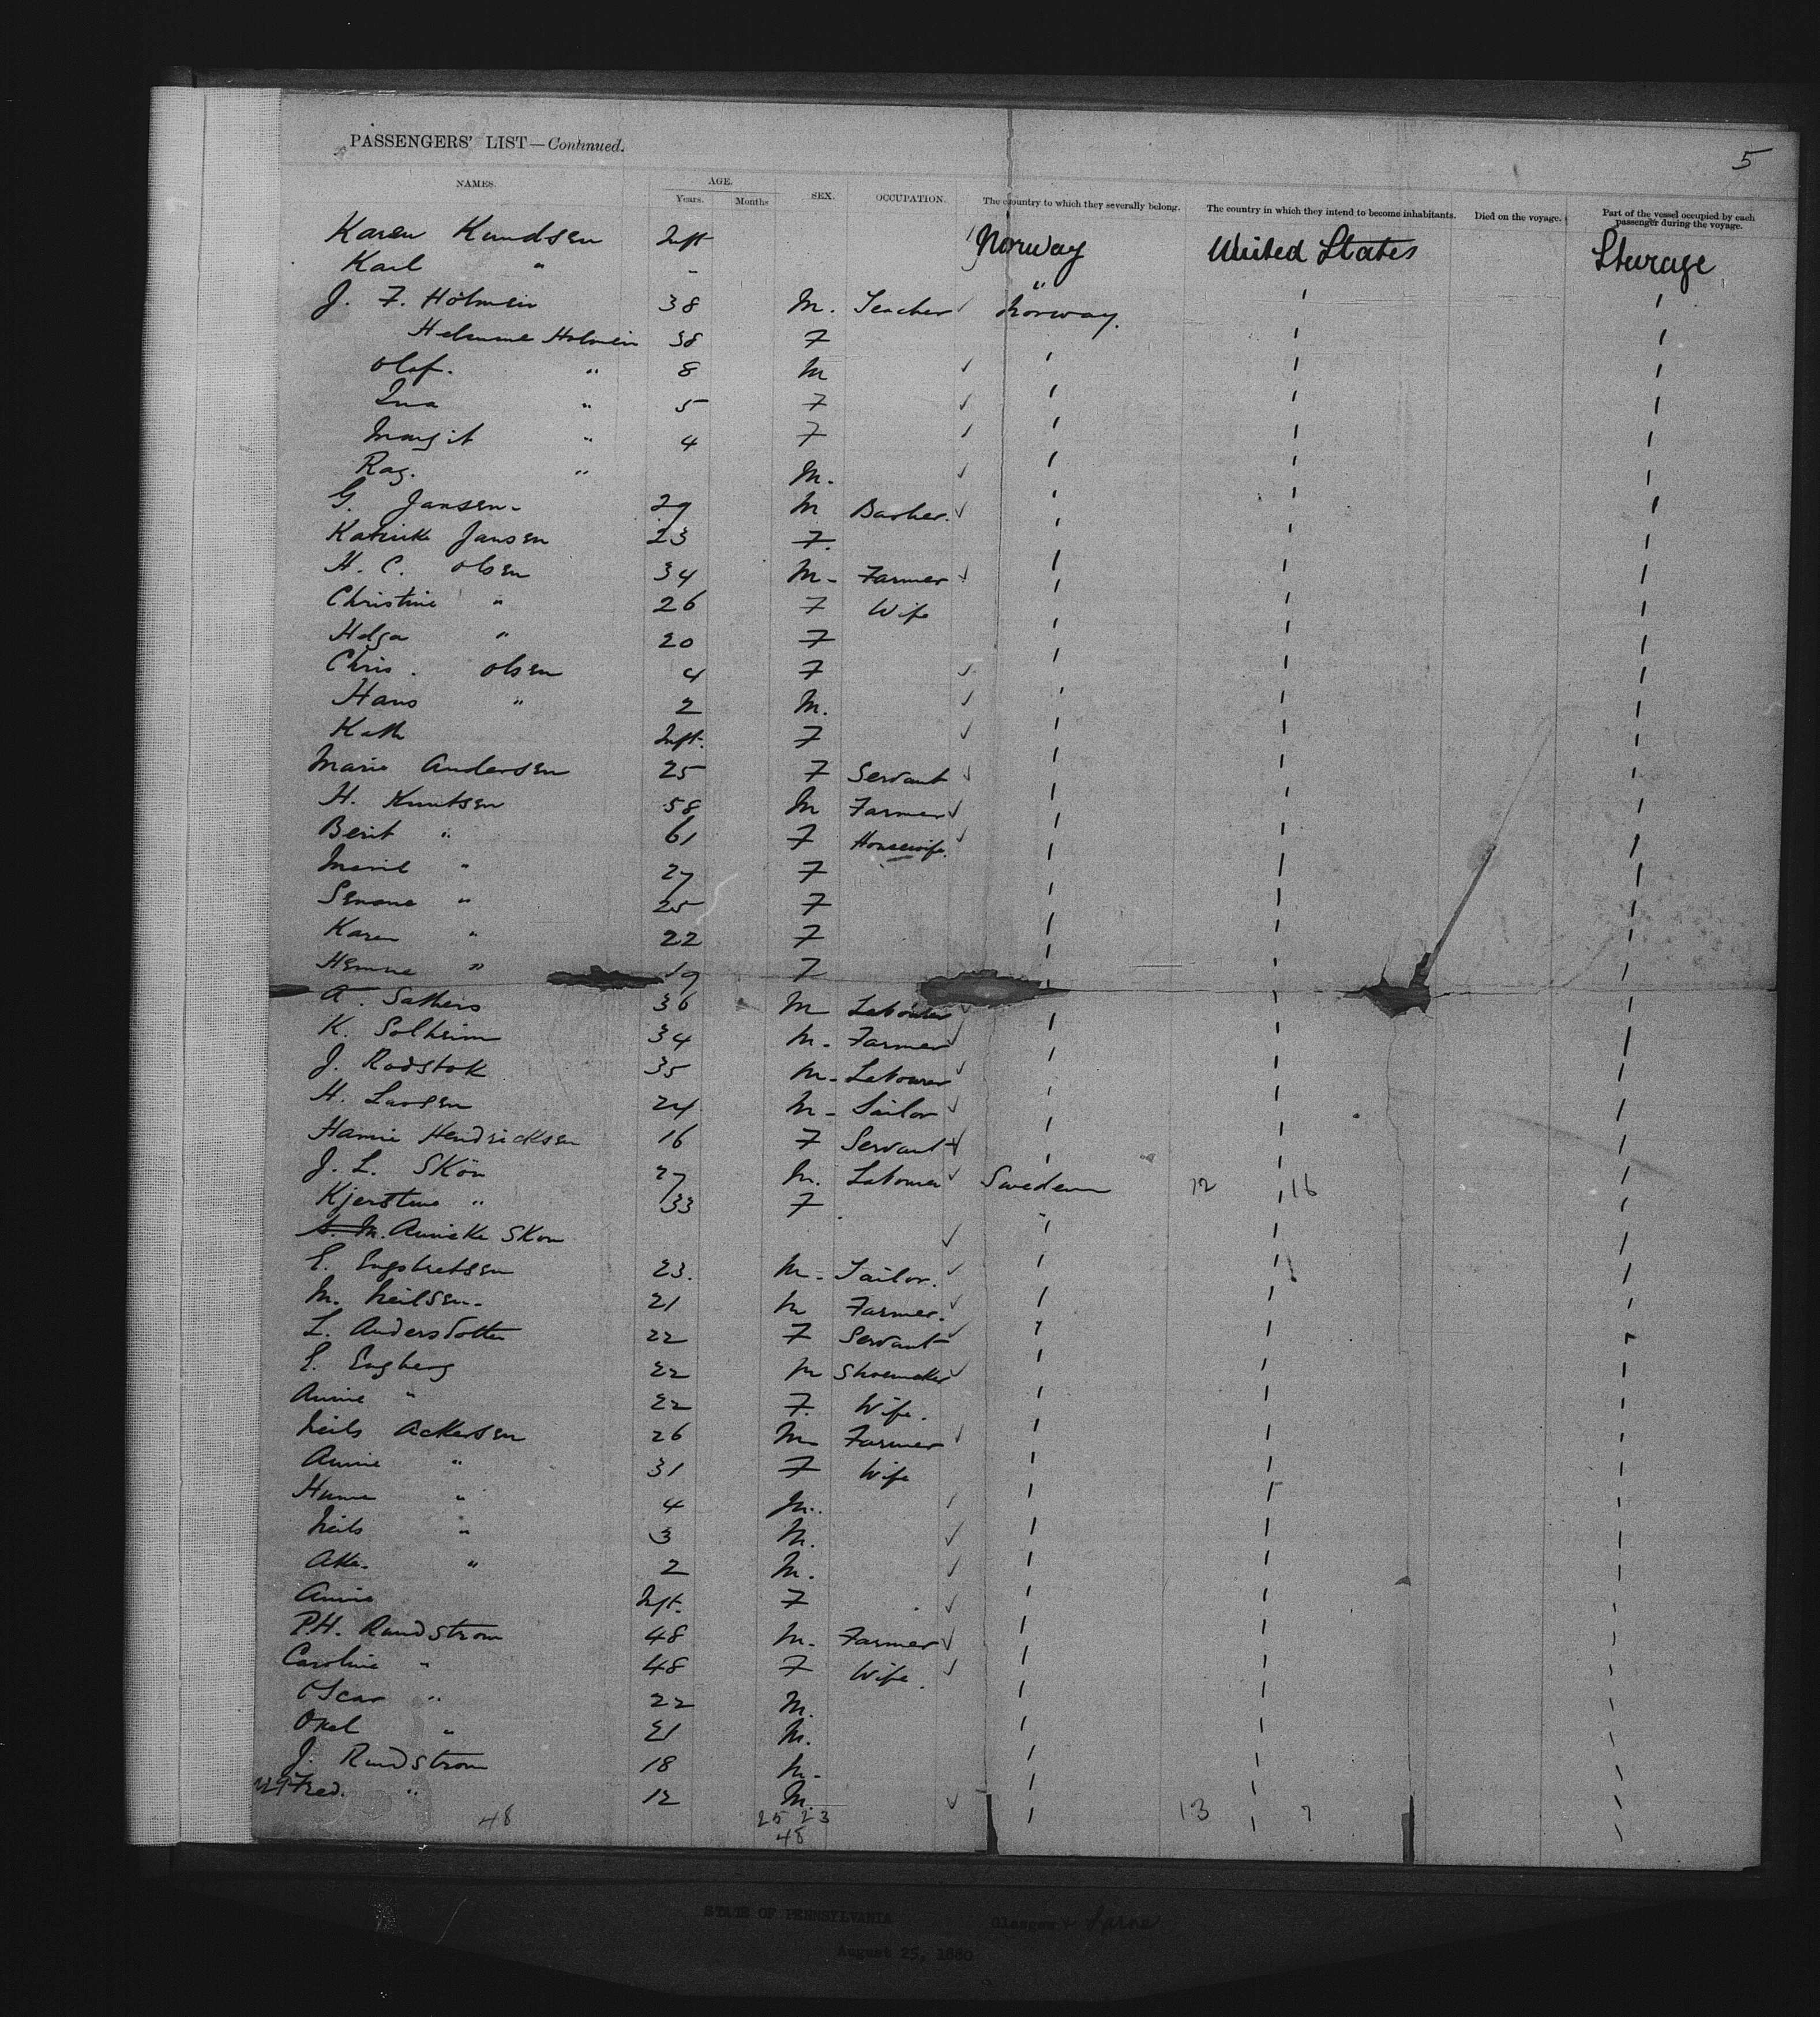 5
PASSENGERS' LIST—Continued.
NAMES. AGE. Years. Months SEX. OCCUPATION. The country to which they severally belong. The country in which they intend to become inhabitants. Died on the voyage. Part of the vessel occupied by each passenger during the voyage.
Karen Knudsen Inft Norway United States Steerage
Karl " - "
J. F. Holmen 38 M. Teacher Norway.
Holmen 38 F
Olof. " 8 M
Ina " 5 F
Margit " 4 F
Rag. " M.
G. Jansen. 29 M Barber.
Jansen 23 F.
H. C. Olsen 34 M. Farmer
Christine " 26 F Wife
Helga " 20 F
Chris. Olsen 4 F
Hans " 2 M.
Kath Inft. F
Marie Andersen 25 F Servant
H. Knutsen 58 M Farmer
Berit " 61 F Housewife.
Marit " 27 F
" 25 F
Karen " 22 F
" 19 F
A. Sathers 36 M Labourer
K. Solheim 34 M. Farmer
J. Rodstok 35 M. Labourer
H. Larsen 24 M. Sailor
Hannie Hendricksen 16 F Servant
J. L. Skön 27 M. Labourer Sweden 12 16
Kjerstine " 33 F "
Annieke Skon
E. Engbretsen 23. M. Tailor.
M. Neilsen. 21 M Farmer.
L. Andersdotter 22 F Servant
E. Engberg 22 M Shoemaker
Annie " 22 F. Wife.
Neils Ackersen 26 M Farmer
Annie " 31 F Wife
" 4 M.
Neils " 3 M.
Ake. " 2 M.
Annie Inft. F
P.H. Rundstrom 48 M. Farmer
Caroline " 48 F Wife.
Oscar " 22 M.
Oxel " 21 M.
J. Rundstrom 18 M.
Fred. " 12 M.
48 25 23 13 7
48
STATE OF PENNSYLVANIA Glasgow & Larne
August 25, 1880